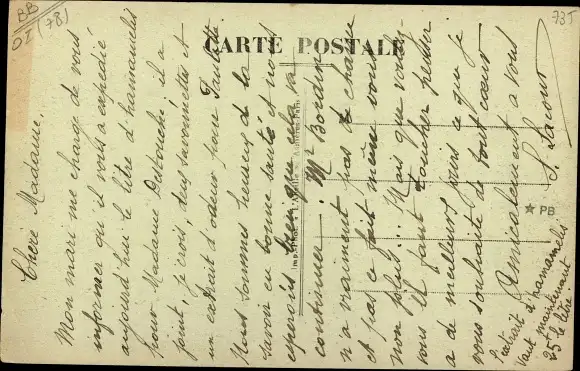 BB
OI (78)
73J
CARTE POSTALE
Chère Madame,
Mon mari me charge de vous
informer qu'il vous a expédié
aujourd'hui le litre d'hamamelis
pour Madame Debouché; il a
joint, je crois, deux savonnettes et
un extrait d'odeur pour Paulette.
Nous sommes heureux de la
savoir en bonne santé et nous
espérons bien que cela va
continuer. Mr Bordin
n'a vraiment pas de chance
et pas ce fait même vous
non plus... Mais que voulez-
vous il faut toucher penser
a de meilleurs jours ce que je
vous souhaite de tout cœur
Amicalement a vous
S. Lacour
PB
L'extrait d'hamamelis
Vaut maintenant
25 le litre